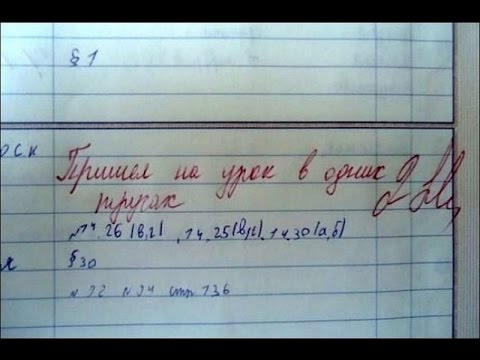 § 1
оск
Пришел на урок в одних
трусах
№14.26 (в,г), 14.25(в,г), 14.30(а,б)
я
§ 30
№ 92 № 94 стр 136